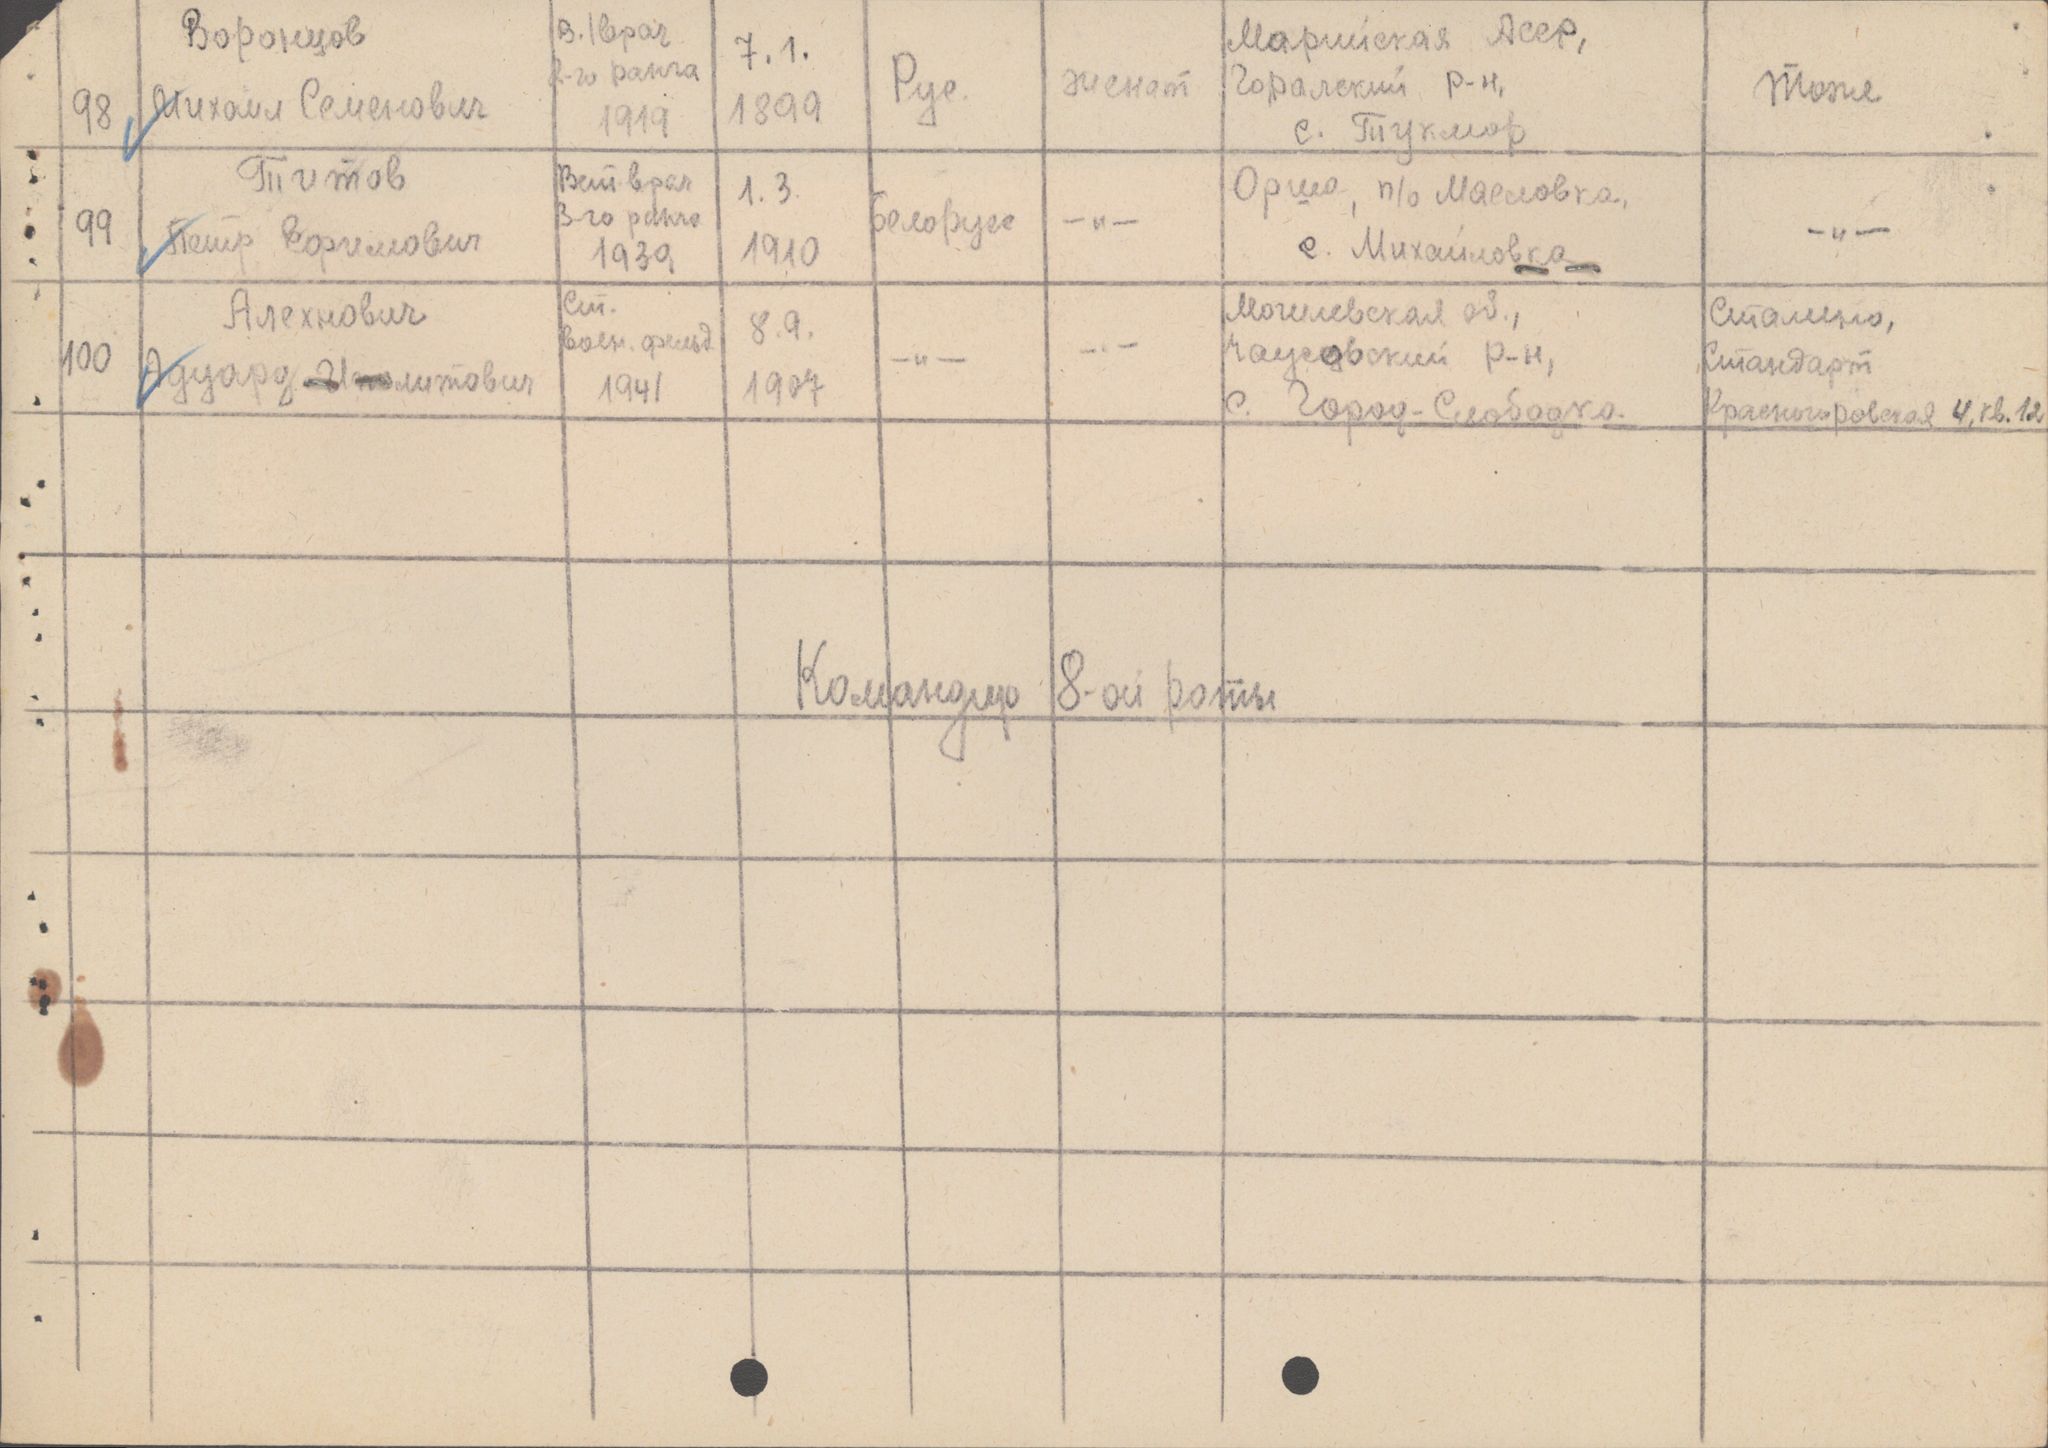 98
Воронцов
Михаил Семенович
В./врач
2-го ранга
1919
7.1.
1899
Рус.
женат
Марийская Асср,
Горалский р-н,
с. Тукмор
Тоже
99
Титов
Петр Ефимович
Вет.врач
3-го ранга
1939
1.3.
1910
Белорусс
-"-
Орша, п/о Масловка,
с. Михайловка
-"-
100
Алехнович
Эдуард Иполитович
Ст.
воен. фельд
1941
8.9.
1907
-"-
-"-
Могилевская об.,
Чаусовский р-н,
с. Город-Слободка.
Сталино,
Стандарт
Красногоровская 4, кв. 12
Командир 8-ой роты